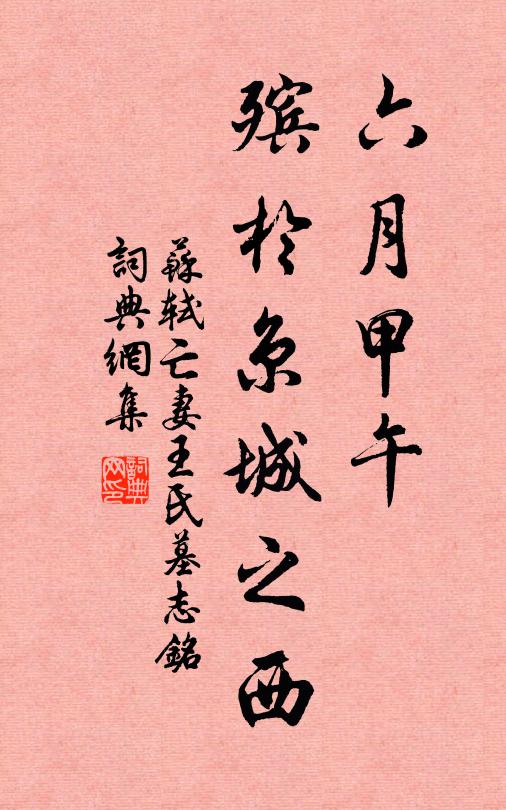 六月甲午
殯於京城之西
蘇軾亡妻王氏墓志銘
詞典網集
詞典网印